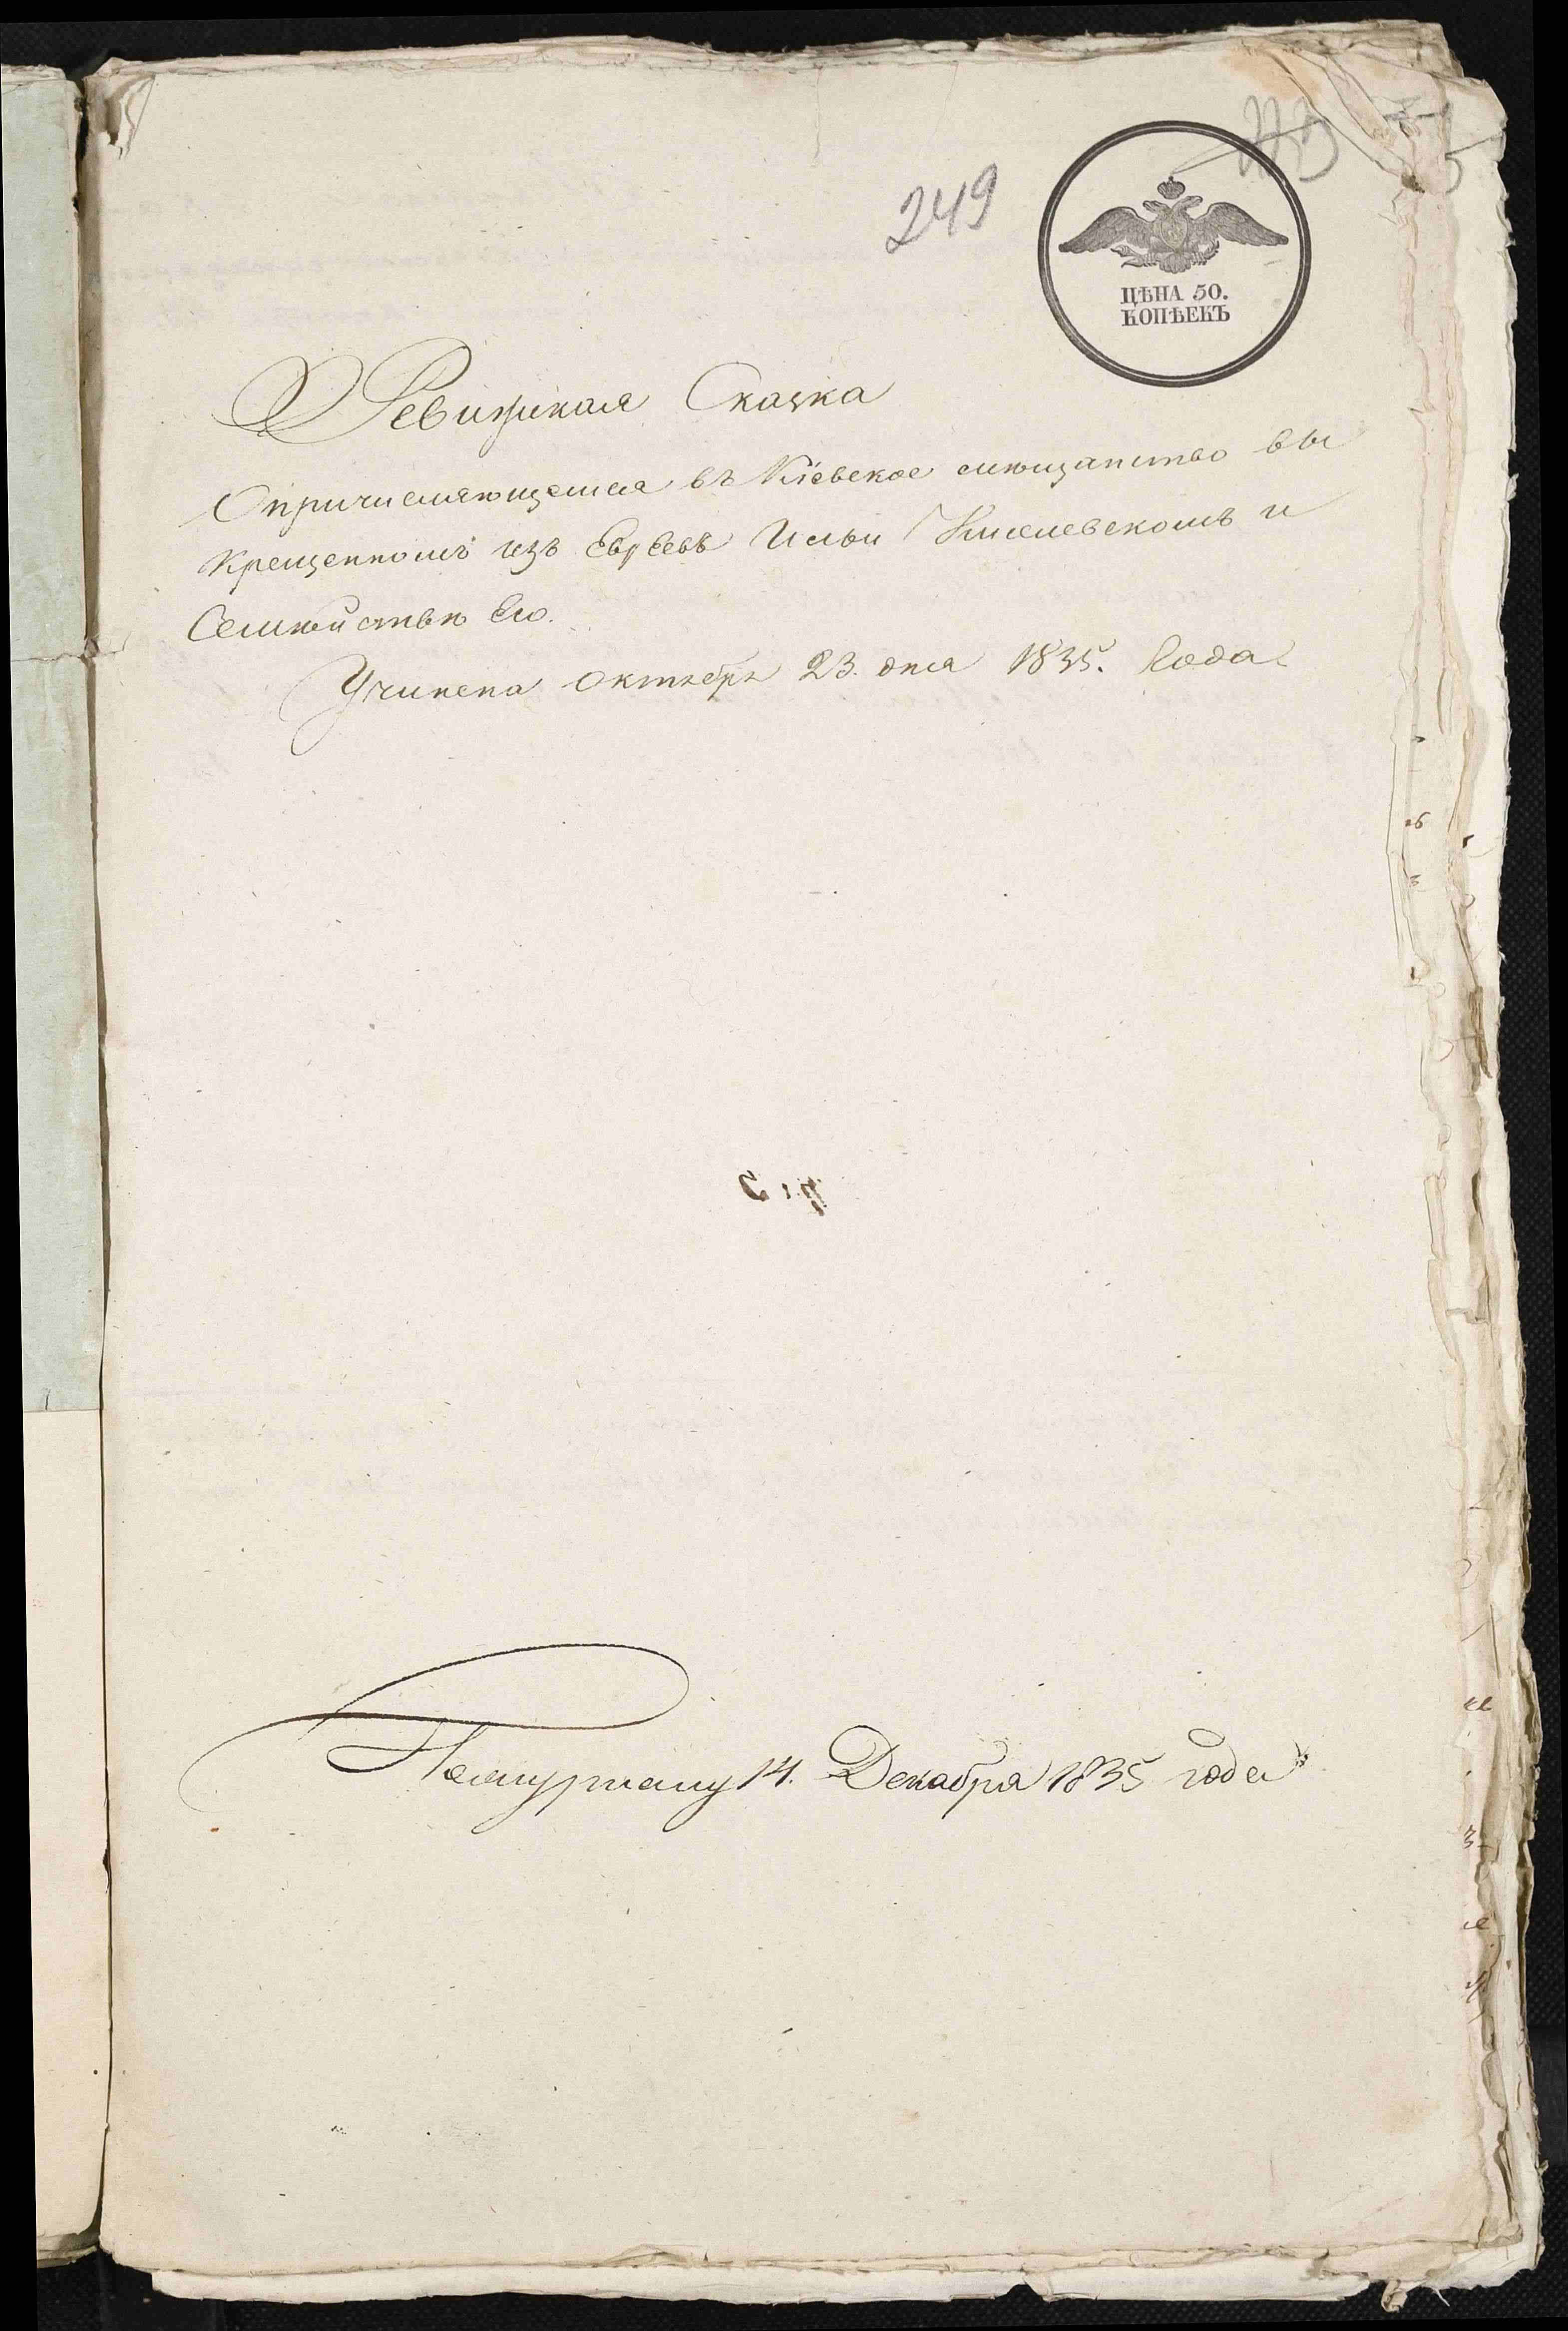 249
ЦѢНА 50.
КОПѢЕКЪ
Ревижская Сказка
О причисляющемся въ Кіевское мѣщанство вы
крещенномъ изъ Евреевъ Ильи Киселевскомъ и
Семѣйствѣ Его.
Учинена октября 23. дня 1835. Года
14. Декабря 1835 года